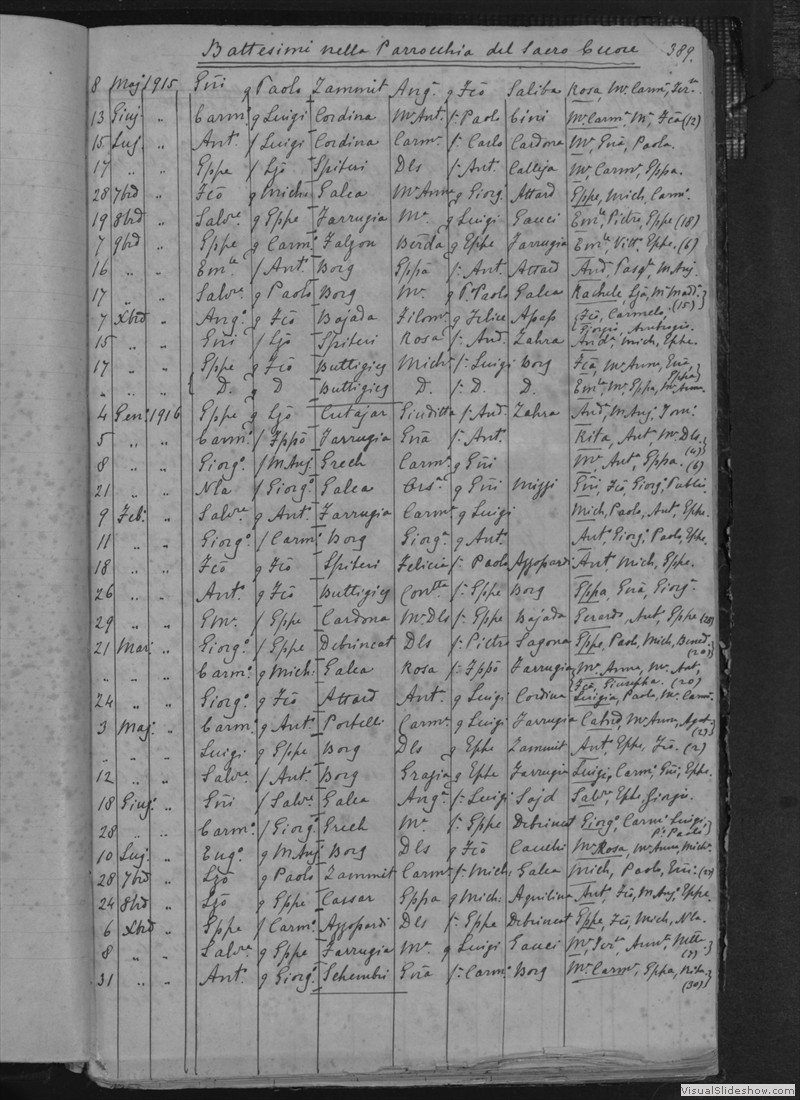 Battesimi nella Parrocchia del Sacro Cuore 389.
8 Maj. 1915 Gni g Paolo Zammit Ang. g Fcõ Saliba Rosa, Mª Carm,
13 Giuj. „ Carm. g Luigi Cordina M. Ant. f. Paolo Cini Mª Carmª, Mª, Fcã (12)
15 Luj. „ Ant. f Luigi Cordina Carm. f. Carlo Cardona Mª, Gnã, Paola.
17 „ „ Eppe f Ljõ Spiteri Dls f. Ant. Calleja Mª Carmª, Eppa.
28 7brẽ „ Fcõ g Mich. Galea M. Anna g Giorg. Attard Eppe, Mich, Carmº.
19 8brẽ „ Salv.re g Eppe Farrugia Mª g Luigi Gauci Em.le Pietro, Eppe (18)
7 9brẽ „ Eppe g Carm. Falzon Berda g Eppe Farrugia Em.le Vitt., Eppe. (6)
16 „ „ Em.le f Ant. Borg Eppã f. Ant. Attard And, Pasq.le, M. Anj.
17 „ „ Salv.re g Paolo Borg Mª g P. Paolo Galea Rachele, Ljã, Mª Madd.}
(15)
7 Xbrẽ „ Ang. g Fcõ Bajada Filom. g Felice Apap {Fcã, Carmela,
Giorgia,
15 „ „ Gni f Ljõ Spiteri Rosa f. And. Zahra And., Mich, Eppe.
17 „ „ Eppe g Fcõ Buttigieg Mich. f. Luigi Borg Fcã, Mª Anna, Gnã,
Eppa}
„ „ „ { D. g D Buttigieg D. f. D. D. Emla Mª Eppa, Mª Anna.
4 Gen. 1916 Eppe g Ljõ Cutajar Giuditta f. And. Zahra And, M. Anj. Dom.
5 „ „ Carm. f Fppõ Farrugia Gnã f. Ant. Rita, Ant, Mª Dls.}
(4)
8 „ „ Giorg. f M. Anj. Grech Carm. g Gni Mª, Ant, Eppa. (6)
21 „ „ Nla f Giorg. Galea Ors. g Gni Mizzi Gni, Fcõ, Giorg, Publi.
9 Feb. „ Salv.re g Ant. Farrugia Carm. g Luigi Mich, Paolo, Ant, Eppe.
11 „ „ Giorg. f Carm. Borg Giorg. g Ant. Ant, Giorg. Paolo, Eppe.
18 „ „ Fcõ g Fcõ Spiteri Felicia f. Paolo Azzopardi Ant Mich, Eppe.
26 „ „ Ant. g Fcõ Buttigieg f. Eppe Borg Eppa, Gnã, Giorg.
29 „ „ Em. f Eppe Cardona M. Dls f. Eppe Bajada Gerardo, Ant, Eppe (28)
21 Mar. „ Giorg. f Eppe Debrincat Dls f. Pietro Lagona Eppe, Paolo, Mich, Bened.}
(20)
„ „ „ Carm. g Mich. Galea Rosa f. Fppõ Farrugia {Mª Anna, Mª Ant.
Fcã, Giuseppa. (20)
24 „ „ Giorg. g Fcõ Attard Ant. g Luigi Cordina Luigia, Paola, Mª Carm.
3 Maj. „ Carm. g Ant. Portelli Carm. g Luigi Farrugia Cat.rina Mª Ann,
(2)
„ „ „ Luigi g Eppe Borg Dls g Eppe Zammit Ant, Eppe, Fcõ. (2)
12 „ „ Salv.re f Ant. Borg Grazia g Eppe Farrugia Luigi, Carm. Gni, Eppe.
18 Giuj. „ Gni f Salv.re Galea Ang. f. Luigi Sajd Salv.re, Eppe Giorgio.
28 „ „ Carm. f Giorg. Grech Mª f. Eppe Debrincat Giorg, Carmº Luigi,}
P. Paolo
10 Luj. „ Eug. g M. Anj. Borg Dls g Fcõ Cauchi Mª Rosa, Mª Ann, Mich.
28 7brẽ „ Ljõ g Paolo Zammit Carm. f. Mich. Galea Mich, Paolo, Gni.
24 8brẽ „ Ljõ g Eppe Cassar Eppa g Mich. Aquilina Ant, Fcõ, M. Anj. Eppe.
6 Xbrẽ „ Eppe f Carm. Azzopardi Dls f. Eppe Debrincat Eppe, Fcõ, Mich, Nla.
8 „ „ Salv.re g Eppe Farrugia Mª g Luigi Gauci Mª,
31 „ „ Ant. g Giorg. Schembri Gnã f. Carm. Borg Mª Carmª, Eppa, Rita.}
(30)
VisualSlideshow.com